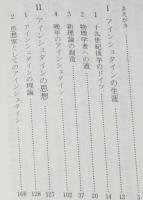 まえがき 5
I アインシュタインの生涯 13
1 十九世紀後半のドイツ 14
2 物理学者への道 20
3 新理論の創造 37
4 晩年のアインシュタイン 102
II アインシュタインの思想 127
1 アインシュタインの理論 128
2 思想家としてのアインシュタイン 166